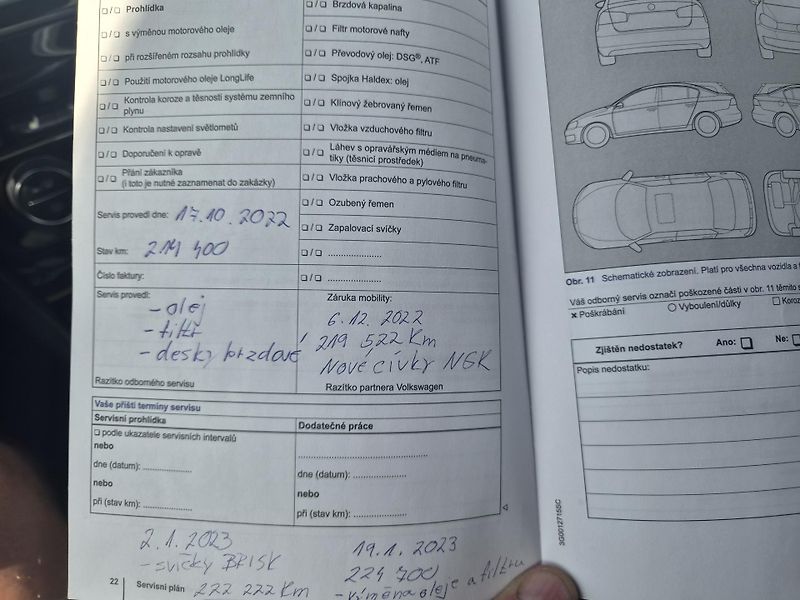 ❏ / ❏ Prohlídka
❏ / ❏ s výměnou motorového oleje
❏ / ❏ při rozšířeném rozsahu prohlídky
❏ / ❏ Použití motorového oleje LongLife
❏ / ❏ Kontrola koroze a těsnosti systému zemního
plynu
❏ / ❏ Kontrola nastavení světlometů
❏ / ❏ Doporučení k opravě
❏ / ❏ Přání zákazníka
(i toto je nutné zaznamenat do zakázky)
Servis provedl dne: 17.10.2022
Stav km: 214 400
Číslo faktury:
Servis provedl:
- olej
- filtr
- desky brzdové
Razítko odborného servisu
❏ / ❏ Brzdová kapalina
❏ / ❏ Filtr motorové nafty
❏ / ❏ Převodový olej: DSG®, ATF
❏ / ❏ Spojka Haldex: olej
❏ / ❏ Klínový žebrovaný řemen
❏ / ❏ Vložka vzduchového filtru
❏ / ❏ Láhev s opravářským médiem na pneuma-
tiky (těsnicí prostředek)
❏ / ❏ Vložka prachového a pylového filtru
❏ / ❏ Ozubený řemen
❏ / ❏ Zapalovací svíčky
❏ / ❏ ....................
❏ / ❏ ....................
Záruka mobility:
6.12.2022
219 522 Km
Nové cívky NGK
Razítko partnera Volkswagen
Vaše příští termíny servisu
Servisní prohlídka
❏ podle ukazatele servisních intervalů
nebo
dne (datum): ....................
nebo
při (stav km): ....................
Dodatečné práce
........................................
dne (datum): ....................
nebo
při (stav km): ....................
2.1.2023
- svíčky BRISK
222 222 Km
19.1.2023
224 700
- výměna oleje a filtru
22 Servisní plán
Obr. 11 Schematické zobrazení. Platí pro všechna vozidla a
Váš odborný servis označí poškozené části v obr. 11 těmito
× Poškrábání ○ Vyboulení/důlky ❏
Zjištěn nedostatek? Ano: ❏ Ne: ❏
Popis nedostatku:
3G0012715SC